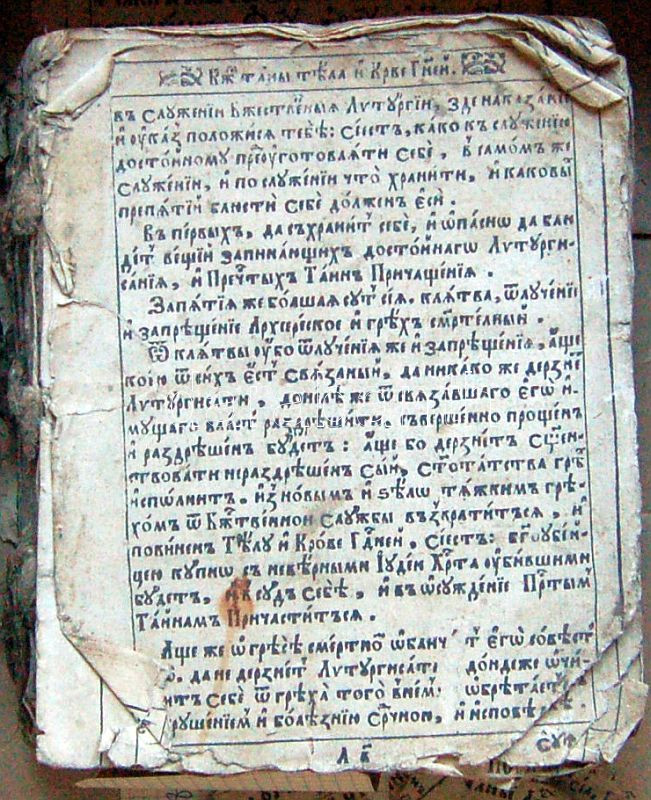 въ Слꙋженїи Бжественныѧ Лїтꙋргїи, Зде наказанїе
и оуказ положисѧ тебѣ: Сіестъ, како къ слꙋженїю
достойномꙋ преоуготовлѧти Себѐ, в самом же
Слꙋженїи, и по слꙋженїи что̀ хранити, и каковы
препѧтїй блюсти Себѐ долженъ есѝ.
Въ первыхъ, да съхранитъ себѐ, и опаснѡ да блю
дет вещїй запинающихъ достойнагѡ Лїтꙋрги-
санїѧ, и Пречтыхъ Таинъ Причащенїѧ.
Запѧтїѧ же болшаѧ сꙋт сїѧ. клѧтва, ѿлꙋченїе
и запрещенїе Архиерейское и грѣхъ смртелный.
Ѿ клѧтвы оубо ѿлꙋченїѧ же и запрещенїѧ, аще
коею ѿ сихъ ест свѧзаный, да никако же дерзнет
Лїтꙋргисати, донелѣже ѿ свѧзавшаго его и-
мꙋщаго власт раздрѣшити, съвершенно прощен
и раздрѣшен бꙋдетъ: аще бо дерзнет сщен-
ствовати нераздрѣшен сый, свтотатства грѣх
исполнитъ. из новым и ѕѣлѡ тѧжким грѣ-
хом ѿ Бжтвенной Слꙋжбы възвратитсѧ, и
повинен Тѣлꙋ и Крове Гдней, Сіестъ: бгооубей-
цею кꙋпнѡ съ невѣрными Іꙋдеи Хрта оубившими
бꙋдетъ, и в сꙋдъ Себѣ, и въ ѡсꙋжденїе Пртым
Тайнамъ Причаститъсѧ.
Аще же ѡ грѣсѣ смертно ѡблич т его совѣст
да не дерзнет Лїтꙋргисати дондеже ѡчи-
итъ Себѐ ѿ грѣха того внем: ѡбрѣтает
рꙋшенїем и болѣзнїю Срдчною, и исповѣ
л в